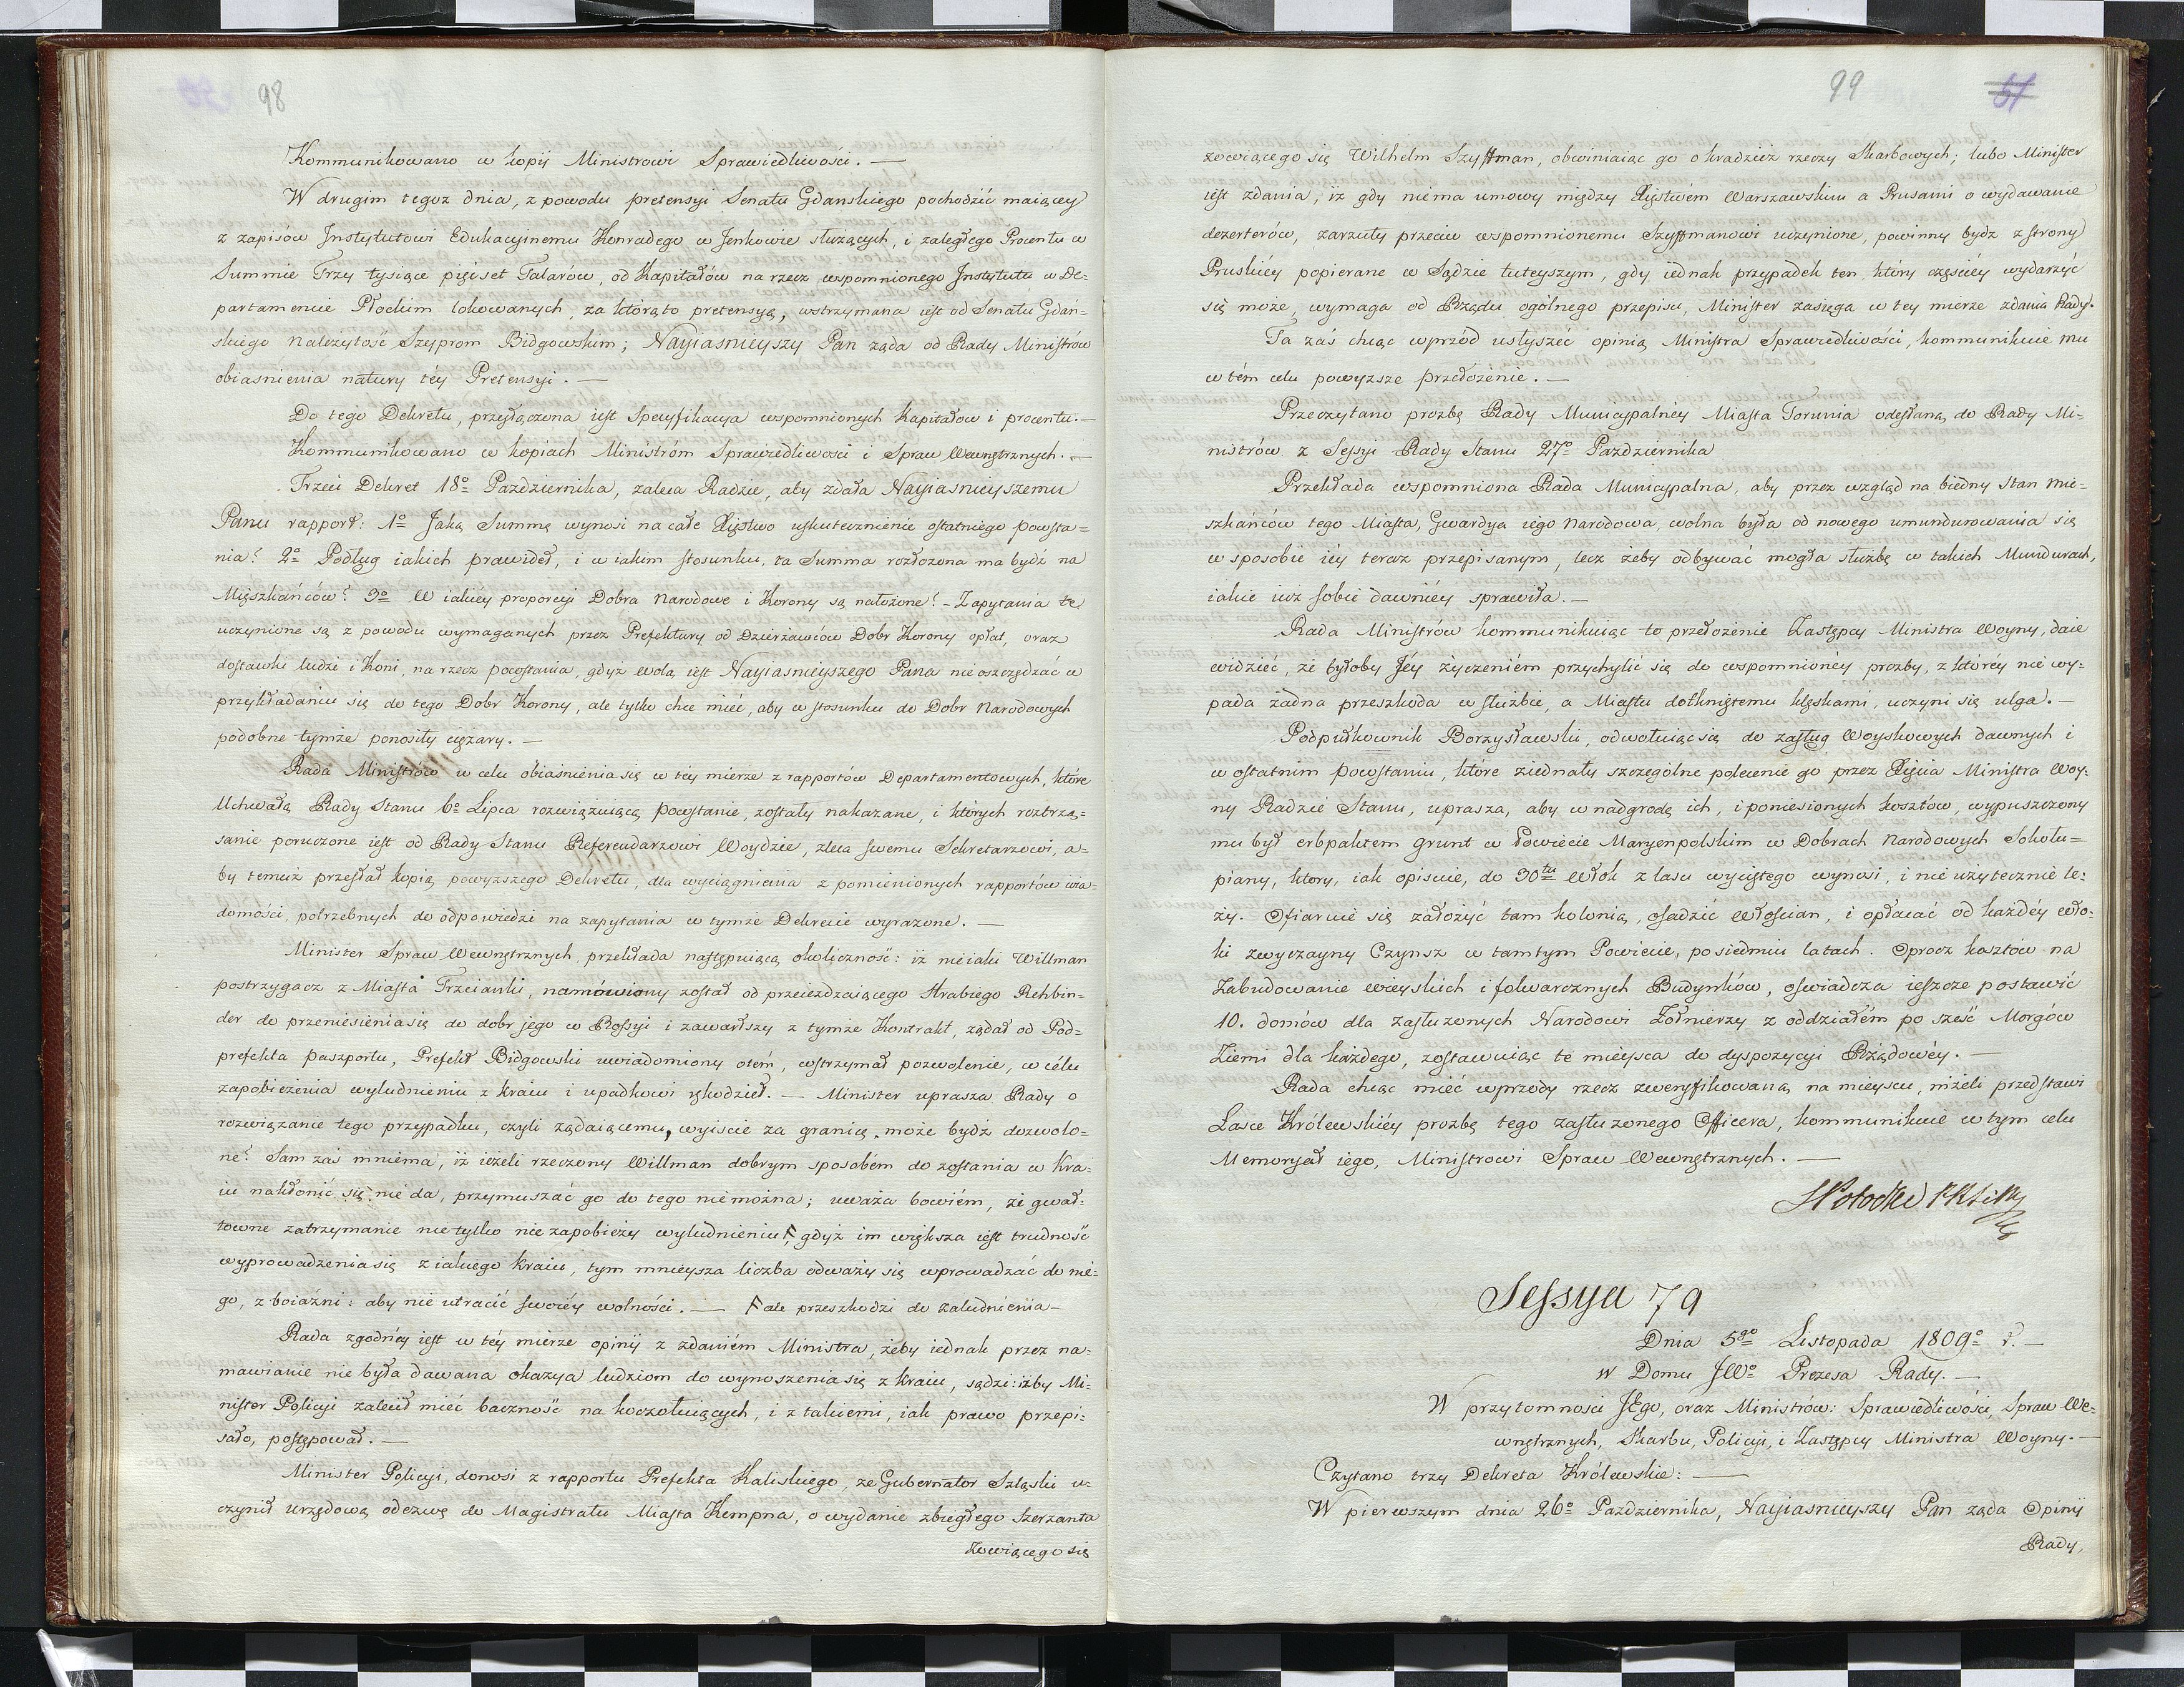 98
Kommunikowano w kopij Ministrowi Sprawiedliwości. —
W drugim tegoż dnia, z powodu pretensyi Senatu Gdanskiego pochodzić maiącey
z zapisów Jnstytutowi Edukacyinemu Konradego w Jenkowie służących, i zaległego Procentu w
Summie Trzy tysiące pięćset Talarów, od Kapitałów na rzecz wspomnionego Jnstytutu w De=
partamencie Płockim lokowanych, za którąto pretensyą, wstrzymana iest od Senatu Gdań=
skiego należytość Szyprom Bidgowskim; Nayiasnieyszy Pan żąda od Rady Ministrów
obiasnienia natury téy Pretensyi. —
Do tego Dekretu, przyłączona iest Specyfikacya wspomnionych Kapitałow i procentu. —
Kommunikowano w kopiach Ministróm Sprawiedliwości i Spraw Wewnętrznych. —
Trzeci Dekret 18o Pazdziernika, zaleca Radzie, aby zdała Nayiasnieyszemu
Panu rapport: 1o Jaką Summę wynosi na całe Xięstwo uskutecznienie ostatniego powsta=
nia? 2o Podług iakich prawideł, i w iakim stosunku, ta Summa rozłożona ma bydź na
Mięszkańców? 3o W iakiéy proporcyi Dobra Narodowe i Korony są nałożone? – Zapytania te
uczynione są z powodu wymaganych przez Prefektury od Dzierżawców Dobr Korony opłat, oraz
dostawki ludzi i Koni, na rzecz powstania, gdyż wolą iest Nayiasnieyszego Pana nie oszczędzać w
przykładaniu się do tego Dobr Korony, ale tylko chce mieć, aby w stosunku do Dobr Narodowych
podobne tymże ponosiły ciężary. —
Rada Ministrów w celu obiaśnienia się w téy mierze z rapportów Departamentowych, które
Uchwałą Rady Stanu 6o Lipca rozwiązuiącą powstanie, zostały nakazane, i których roztrzą=
sanie poruczone iest od Rady Stanu Referendarzowi Woydzie, zleca swemu Sekretarzowi, a=
by temuż przesłał kopią powyższego Dekretu, dla wyciągnienia z pomienionych rapportów wia=
domości, potrzebnych do odpowiedzi na zapytania w tymże Dekrecie wyrażone. —
Minister Spraw Wewnętrznych, przekłada następuiącą okoliczność: iż nieiaki Willman
postrzygacz z Miasta Trzcianki, namówiony został od przeieżdzaiącego Hrabiego Rehbin=
der do przeniesienia się do dobr jego w Rossyi i zawarłszy z tymże Kontrakt, żądał od Pod=
prefekta paszportu, Prefekt Bidgowski uwiadomiony otem, wstrzymał pozwolenie, w célu
zapobieżenia wyludnieniu z kraiu i upadkowi rękodzieł. — Minister uprasza Rady o
rozwiązanie tego przypadku, czyli żądaiącemu, wyiscie za granicę, może bydź dozwolo=
ne? Sam zaś mniema, iż ieżeli rzeczony Willman dobrym sposobem do zostania w kra=
iu nakłonić się nie da, przymuszać go do tego nie można; uważa bowiém, że gwał=
towne zatrzymanie nie tylko nie zapobieży wyludnieniu F, gdyż im większa iest trudność
wyprowadzenia się z iakiego kraiu, tym mnieysza liczba odważy się wprowadzać do nie=
go, z boiaźni: aby nie utracić swoiéy wolności. — F ale przeszkodzi do zaludnienia –
Rada zgodnéy iest w téy mierze opinij z zdaniém Ministra, żeby iednak przez na=
mawianie nie była dawana okazya ludziom do wynoszenia się z kraiu, sądzi: iżby Mi=
nister Policyi zalecił mieć baczność na koczołuiących, i z takiemi, iak prawo przepi=
sało, postępował. —
Minister Policyi, donosi z rapportu Prefekta Kaliskiego, ze Gubernator Szląski u=
czynił urzędową odezwę do Magistratu Miasta Kempna, o wydanie zbiegłego Szerzanta
zowiącego się
99
51
zowiącego się Wilhelm Szyffman, obwiniaiąc go o kradzież rzeczy Skarbowych; lubo Minister
iest zdania, iż gdy niema umowy między Xięstwém Warszawskim a Prusami o wydawanie
dezerterów, zarzuty przeciw wspomnionemu Szyffmanowi uczynione, powinny bydź z strony
Pruskiéy popierane w Sądzie tuteyszym, gdy iednak przypadék ten, który częściéy wydarzyć
się może, wymaga od Rządu ogólnego przepisu, Minister zasięga w tey mierze zdania Rady.
Ta zaś chcąc wprzód usłyszéć opinią Ministra Sprawiedliwości, kommunikuie mu
w tém celu powyższe przełożenie. —
Przeczytano prozbę Rady Municypalnéy Miasta Torunia odesłaną, do Rady Mi=
nistrów z Sessyi Rady Stanu 27o Pazdziernika
Przekłada wspomniona Rada Municypalna, aby przez wzgląd na biedny stan Mie=
szkańców tego Miasta, Gwardya iego Narodowa, wolna była od nowego umundurowania się
w sposobie iéy teraz przepisanym, lecz żeby odbywać mogła służbę w takich Mundurach,
iakie iuż sobie dawniéy sprawiła. —
Rada Ministrów kommunikuiąc to przełożenie Zastępcy Ministra Woyny, daie
widzieć, że byłoby Jéy życzeniém przychylić się do wspomnionéy prozby, z któréy nie wy=
pada żadna przeszkoda w służbie, a Miastu dotkniętemu klęskami, uczyni się ulga. —
Podpułkownik Borzysławski, odwołuiąc się do zasług Woyskowych dawnych i
w ostatnim powstaniu, które ziednały szczególne polecenie go przez Xięcia Ministra Woy=
ny Radzie Stanu, uprasza, aby w nadgrodę ich, i poniesionych kosztów, wypuszczony
mu był erbpaktem grunt w Powiecie Maryenpolskim w Dobrach Narodowych Sokołu=
piany, ktory, iak opisuie, do 30tu Włok z lasu wyciętego wynosi, i nie użytecznie le=
ży. Ofiaruie się założyć tam kolonią, osadzić Włościan, i opłacać od każdéy wło=
ki zwyczayny Czynsz w tamtym Powiecie, po siedmiu latach. Oprocz kosztów na
Zabudowanie wieyskich i folwarcznych Budynków, oswiadcza ieszcze postawić
10. domów dla zasłużonych Narodowi Żołnierzy z oddziałém po sześć Morgów
Ziemi dla każdego, zostawuiąc te mieysca do dyspozycyi Rządowéy. —
Rada chcąc mieć wprzody rzecz zweryfikowaną, na mieyscu, niżeli przedstawi
Łasce Królewskiéy prozbę tego zasłużonego Officera, kommunikuie w tym celu
Memoryał iego, Ministrowi Spraw Wewnętrznych. —
Sessya 79
Dnia 5go Listopada 1809o r. —
w Domu JWo Prezesa Rady. —
W przytomności JEgo, oraz Ministrów: Sprawiedliwości, Spraw We=
wnętrznych, Skarbu, Policyi, i Zastępcy Ministra Woyny. —
Czytano trzy Dekreta Królewskie: —
W pierwszym dnia 26o Pazdziernika, Nayiasnieyszy Pan żąda Opinij
Rady,